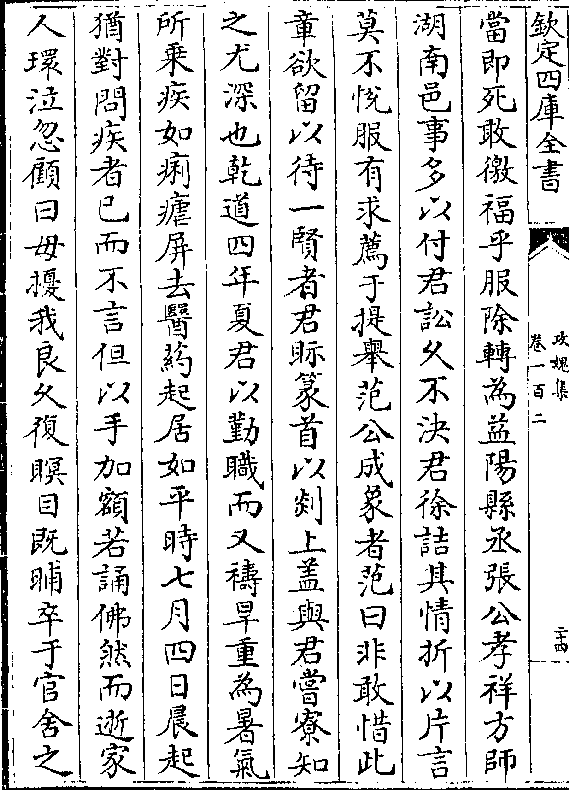 欽定四庫全書
攻媿集
卷一百二
二十四
當即死敢徼福乎服除轉為益陽縣丞張公孝祥方師
湖南邑事多以付君訟久不決君徐詰其情折以片言
莫不悅服有求薦于提舉范公成象者范曰非敢惜此
章欲留以待一賢者君眎篆首以剡上盖與君嘗寮知
之尤深也乾道四年夏君以勤職而又禱旱重為暑氣
所乗疾如痢瘧屏去醫藥起居如平時七月四日晨起
猶對問疾者已而不言但以手加額若誦佛然而逝家
人環泣忽顧曰毋擾我良久復瞑目既晡卒于官舍之